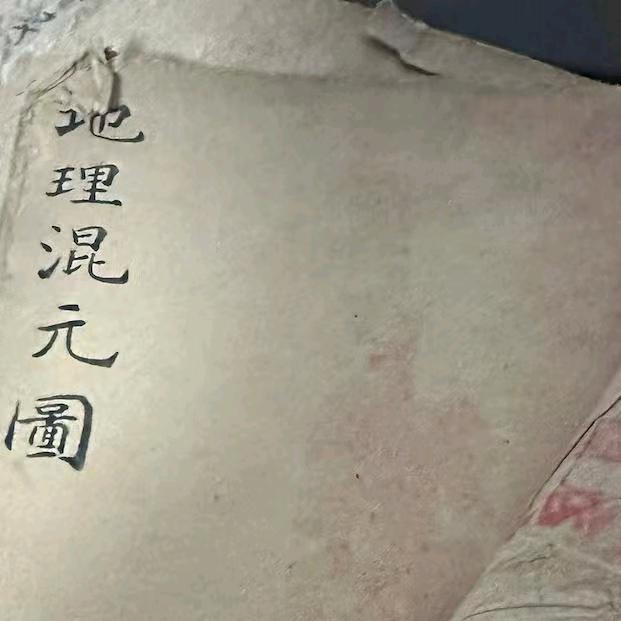 地理混元圖